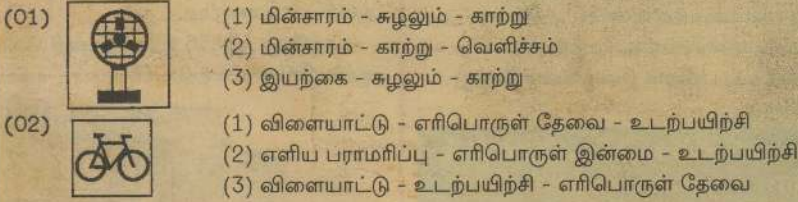 (01) (1) மின்சாரம் - சுழலும் - காற்று
(2) மின்சாரம் - காற்று - வெளிச்சம்
(3) இயற்கை - சுழலும் - காற்று
(02) (1) விளையாட்டு - எரிபொருள் தேவை - உடற்பயிற்சி
(2) எளிய பராமரிப்பு - எரிபொருள் இன்மை - உடற்பயிற்சி
(3) விளையாட்டு - உடற்பயிற்சி - எரிபொருள் தேவை